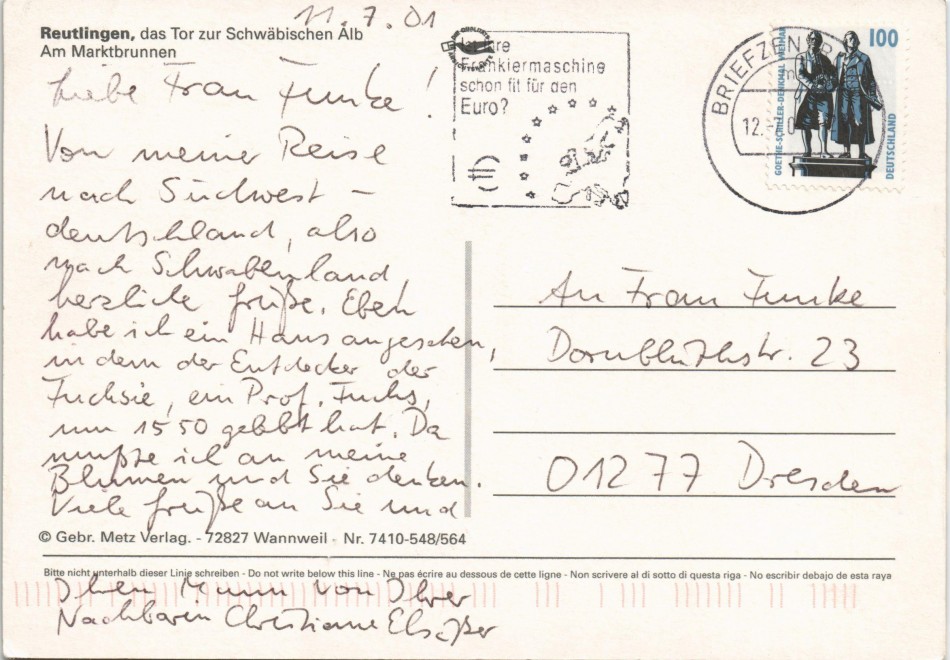 11.7.01
Reutlingen, das Tor zur Schwäbischen Alb
Am Marktbrunnen
Liebe Frau Funke!
Von meiner Reise
nach Südwest-
deutschland, also
nach Schwabenland,
herzliche Grüße. Eben
habe ich ein Haus angesehen,
in dem der Entdecker der
Fuchsie, ein Prof. Fuchs,
um 1550 gelebt hat. Da
mußte ich an meine
Blumen und Sie denken.
Viele Grüße an Sie und
© Gebr. Metz Verlag. - 72827 Wannweil - Nr. 7410-548/564
Bitte nicht unterhalb dieser Linie schreiben - Do not write below this line - Ne pas écrire au dessous de cette ligne - Non scrivere al di sotto di questa riga - No escribir debajo de esta raya
Ihren Mann von Ihrer
Nachbarin Christiane Elsäßer
Ist Ihre
Frankiermaschine
schon fit für den
Euro?
BRIEFZEN
12.
100
GOETHE-SCHILLER-DENKMAL WEIMAR
DEUTSCHLAND
An Frau Funke
Dornblüthstr. 23
01277 Dresden